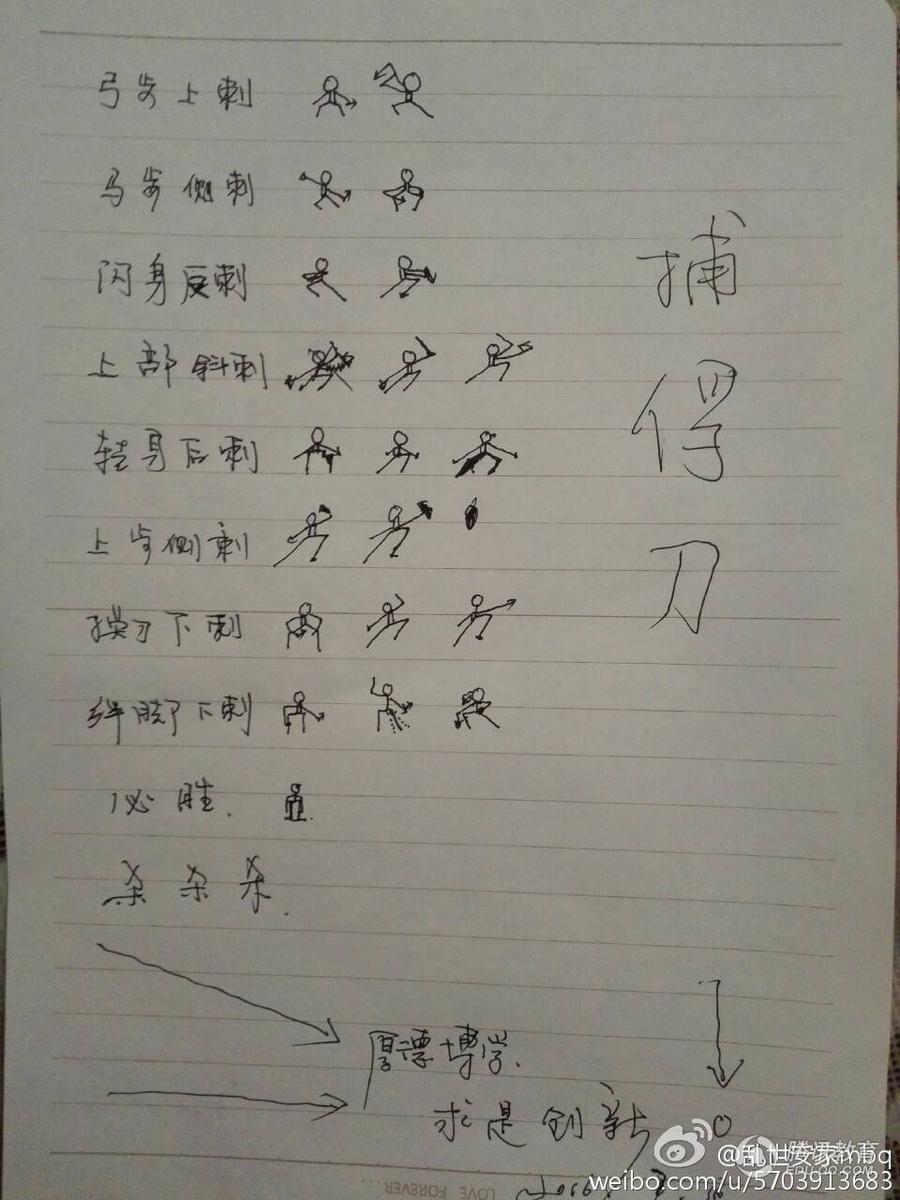 弓步上刺
马步侧刺
闪身反刺
上部斜刺
转身后刺
上步侧刺
摸刀下刺
绊脚下刺
必胜.
杀杀杀.
捕俘刀
厚德博学.
求是创新
LOVE FOREVER
腾讯教育
EDU.QQ.COM
weibo.com/u/5703913683